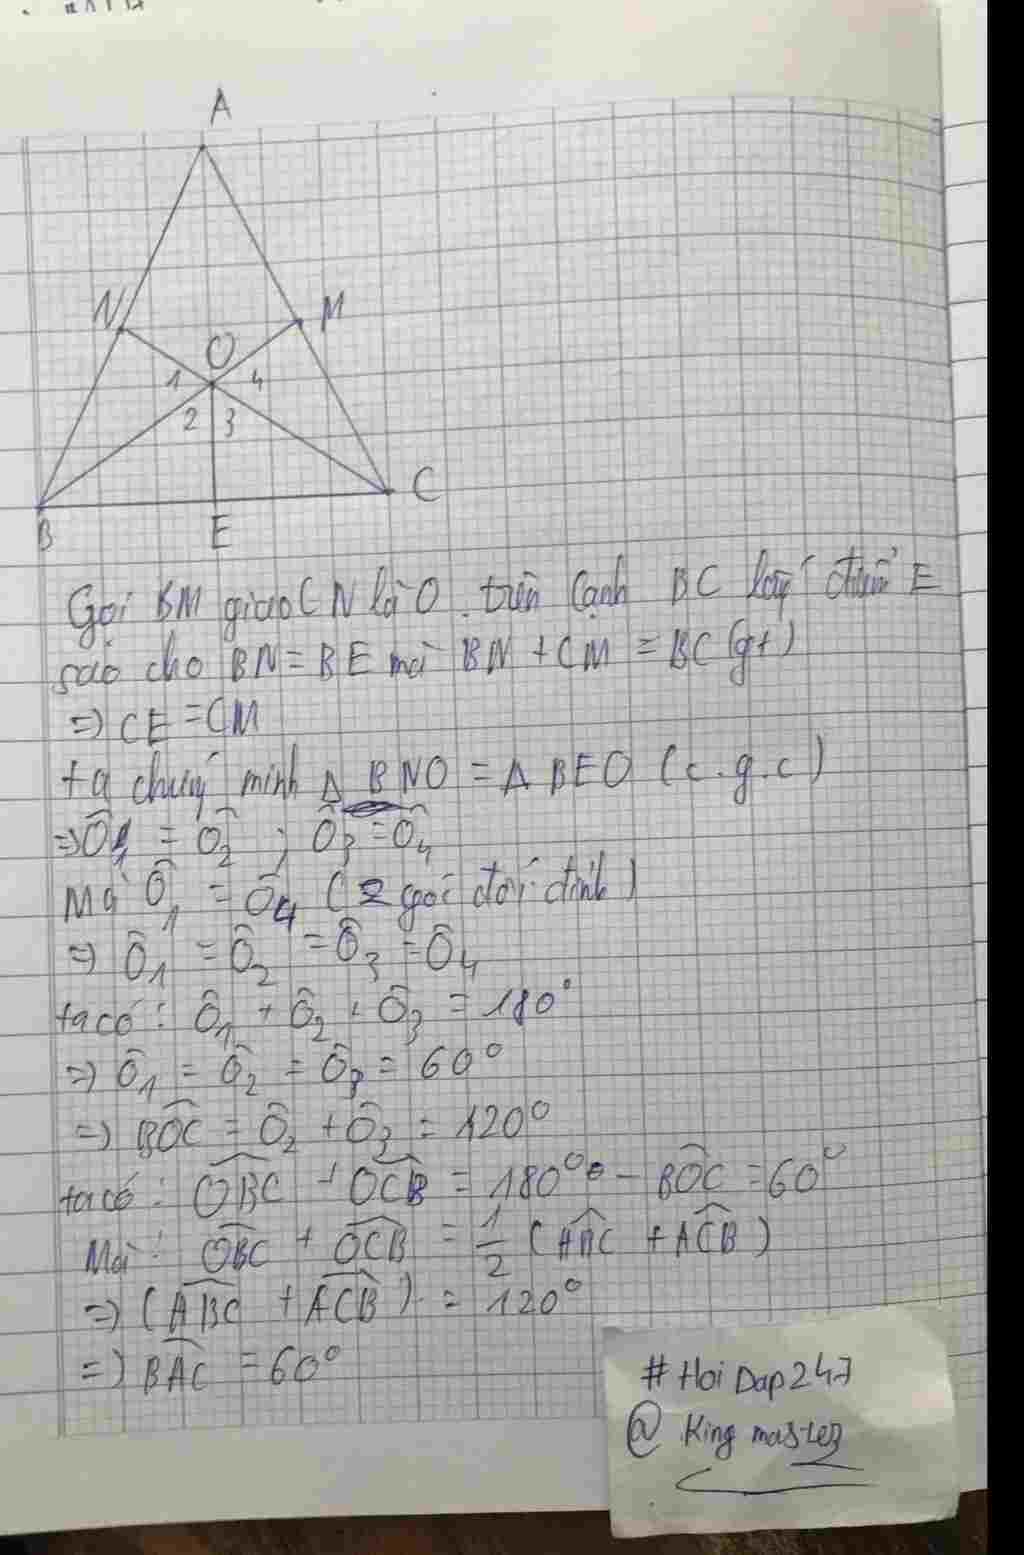 A
N
M
O
1
4
2
3
C
B
E
Gọi BM giao CN là O. trên cạnh BC lấy điểm E
sao cho BN = BE mà BN + CM = BC (gt)
=> CE = CM
ta chứng minh Δ BNO = Δ BEO (c.g.c)
=> Ô1 = Ô2 ; Ô3 = Ô4
Mà Ô1 = Ô4 (2 góc đối đỉnh)
=> Ô1 = Ô2 = Ô3 = Ô4
ta có: Ô1 + Ô2 + Ô3 = 180°
=> Ô1 = Ô2 = Ô3 = 60°
=> BÔC = Ô2 + Ô3 = 120°
ta có: OBC + OCB = 180° - BÔC = 60°
Mà: OBC + OCB = 1/2 (ABC + ACB)
=> (ABC + ACB) = 120°
=> BAC = 60°
# Hoi Dap 247
@ King master